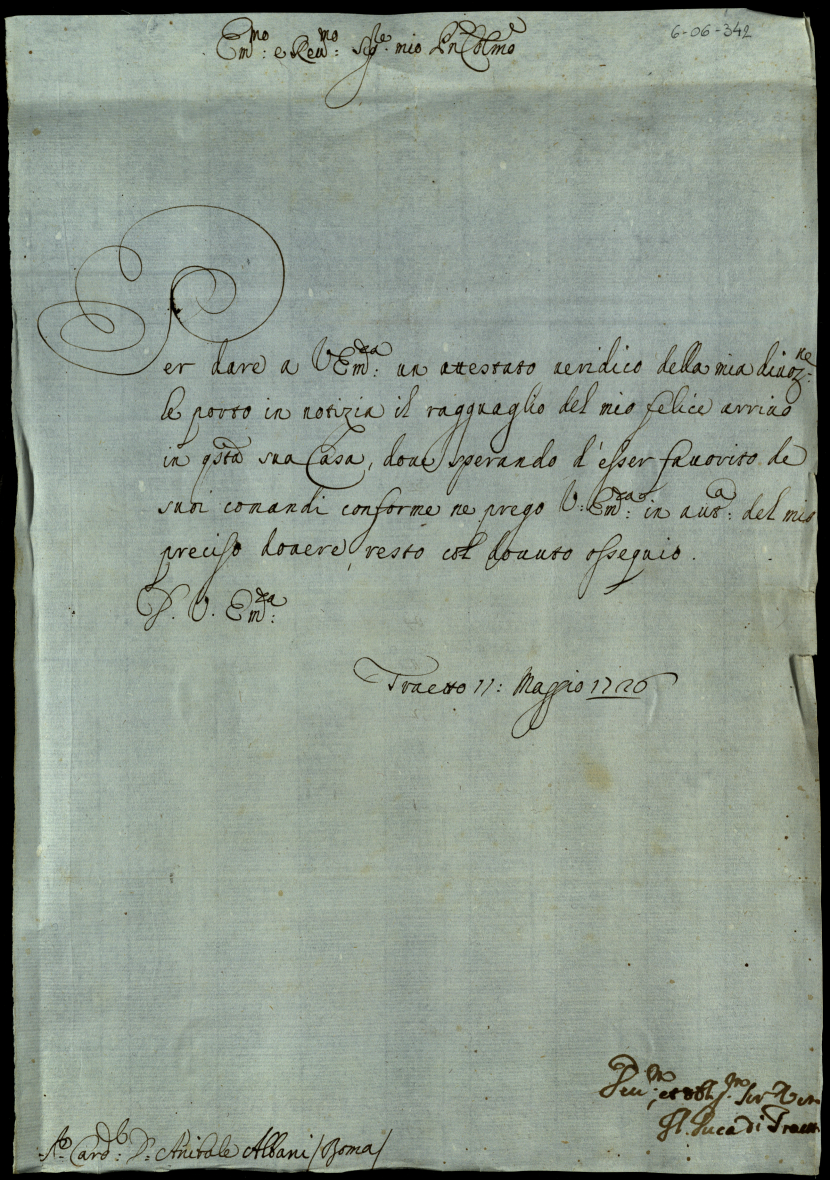 6-06-342
Em^mo: e Reu^mo: Sig^re mio Pñ Colmo
Per dare a V Em^za: un attestato ueridico della mia diuoz^ne:
le porto in notizia il ragguaglio del mio felice arriuo
in q̃sta sua Casa, doue sperando d'esser fauorito de
suoi comandi conforme ne prego V: Em^za: in aut^a: del mio
preciso douere, resto col douuto ossequio.
D. V. Em^za:
Traetto 11: Maggio 1726
Deu^mo: et obblig^mo: Ser
Il Duca di Traetto
S^r Card^l: D. Añibale Albani / Roma /